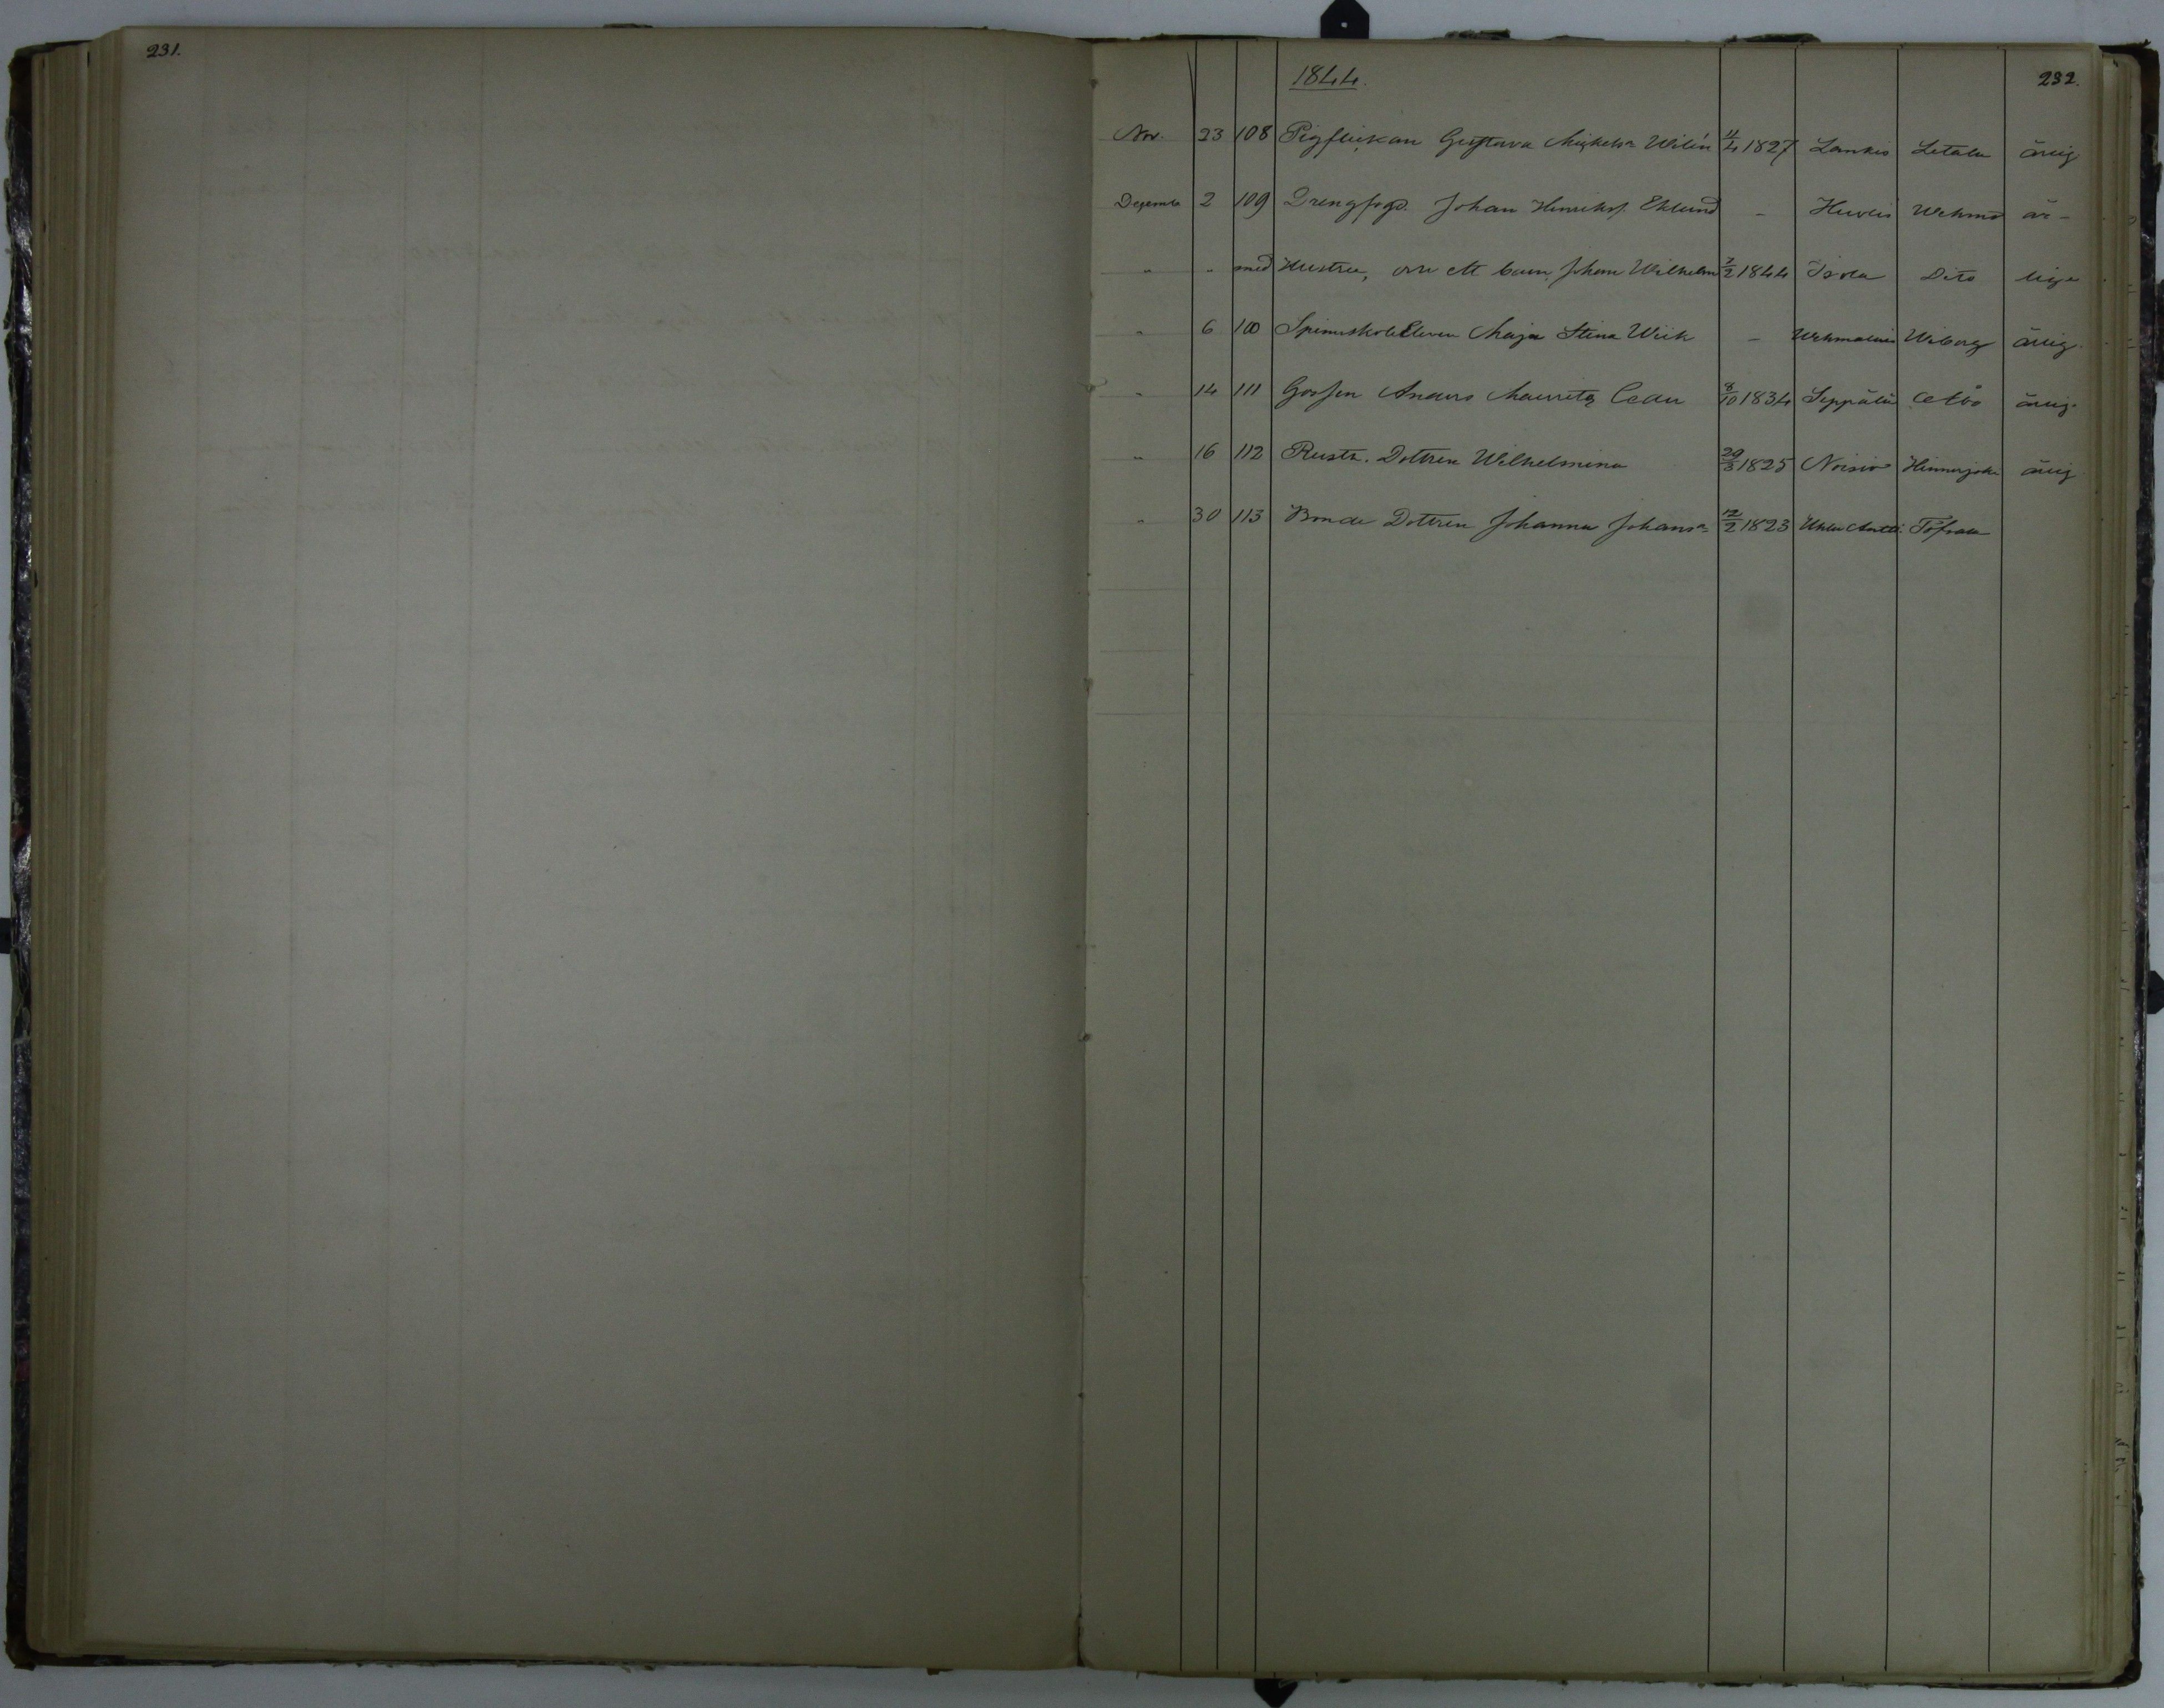 231.
1844. 232.
Nov. 23 108 Pigflickan Gustava Michelsr Wilén 4/4 1827 Lankis Letala ärlig
Decemb 2 109 Drengfogd. Johan Henrikss. Eklund - Huolis Wehmo är-
" " med Hustru, och ett barn, Johan Wilhelm 7/2 1844 Isola Dito lige
" 6 100 Spinnskole Eleven Maja Stina Wiik - Wehmalais Wiborg ärlig.
" 14 111 Gossen Anders Mauritz Ceder 8/10 1834 Seppälä Åbo ärlig.
" 16 112 Rusth. Dottren Wilhelmina 29/3 1825 Noisio Hinnerjoki ärlig
" 30 113 Bonde Dottren Johanna Johansr 12/2 1823 Töfsala